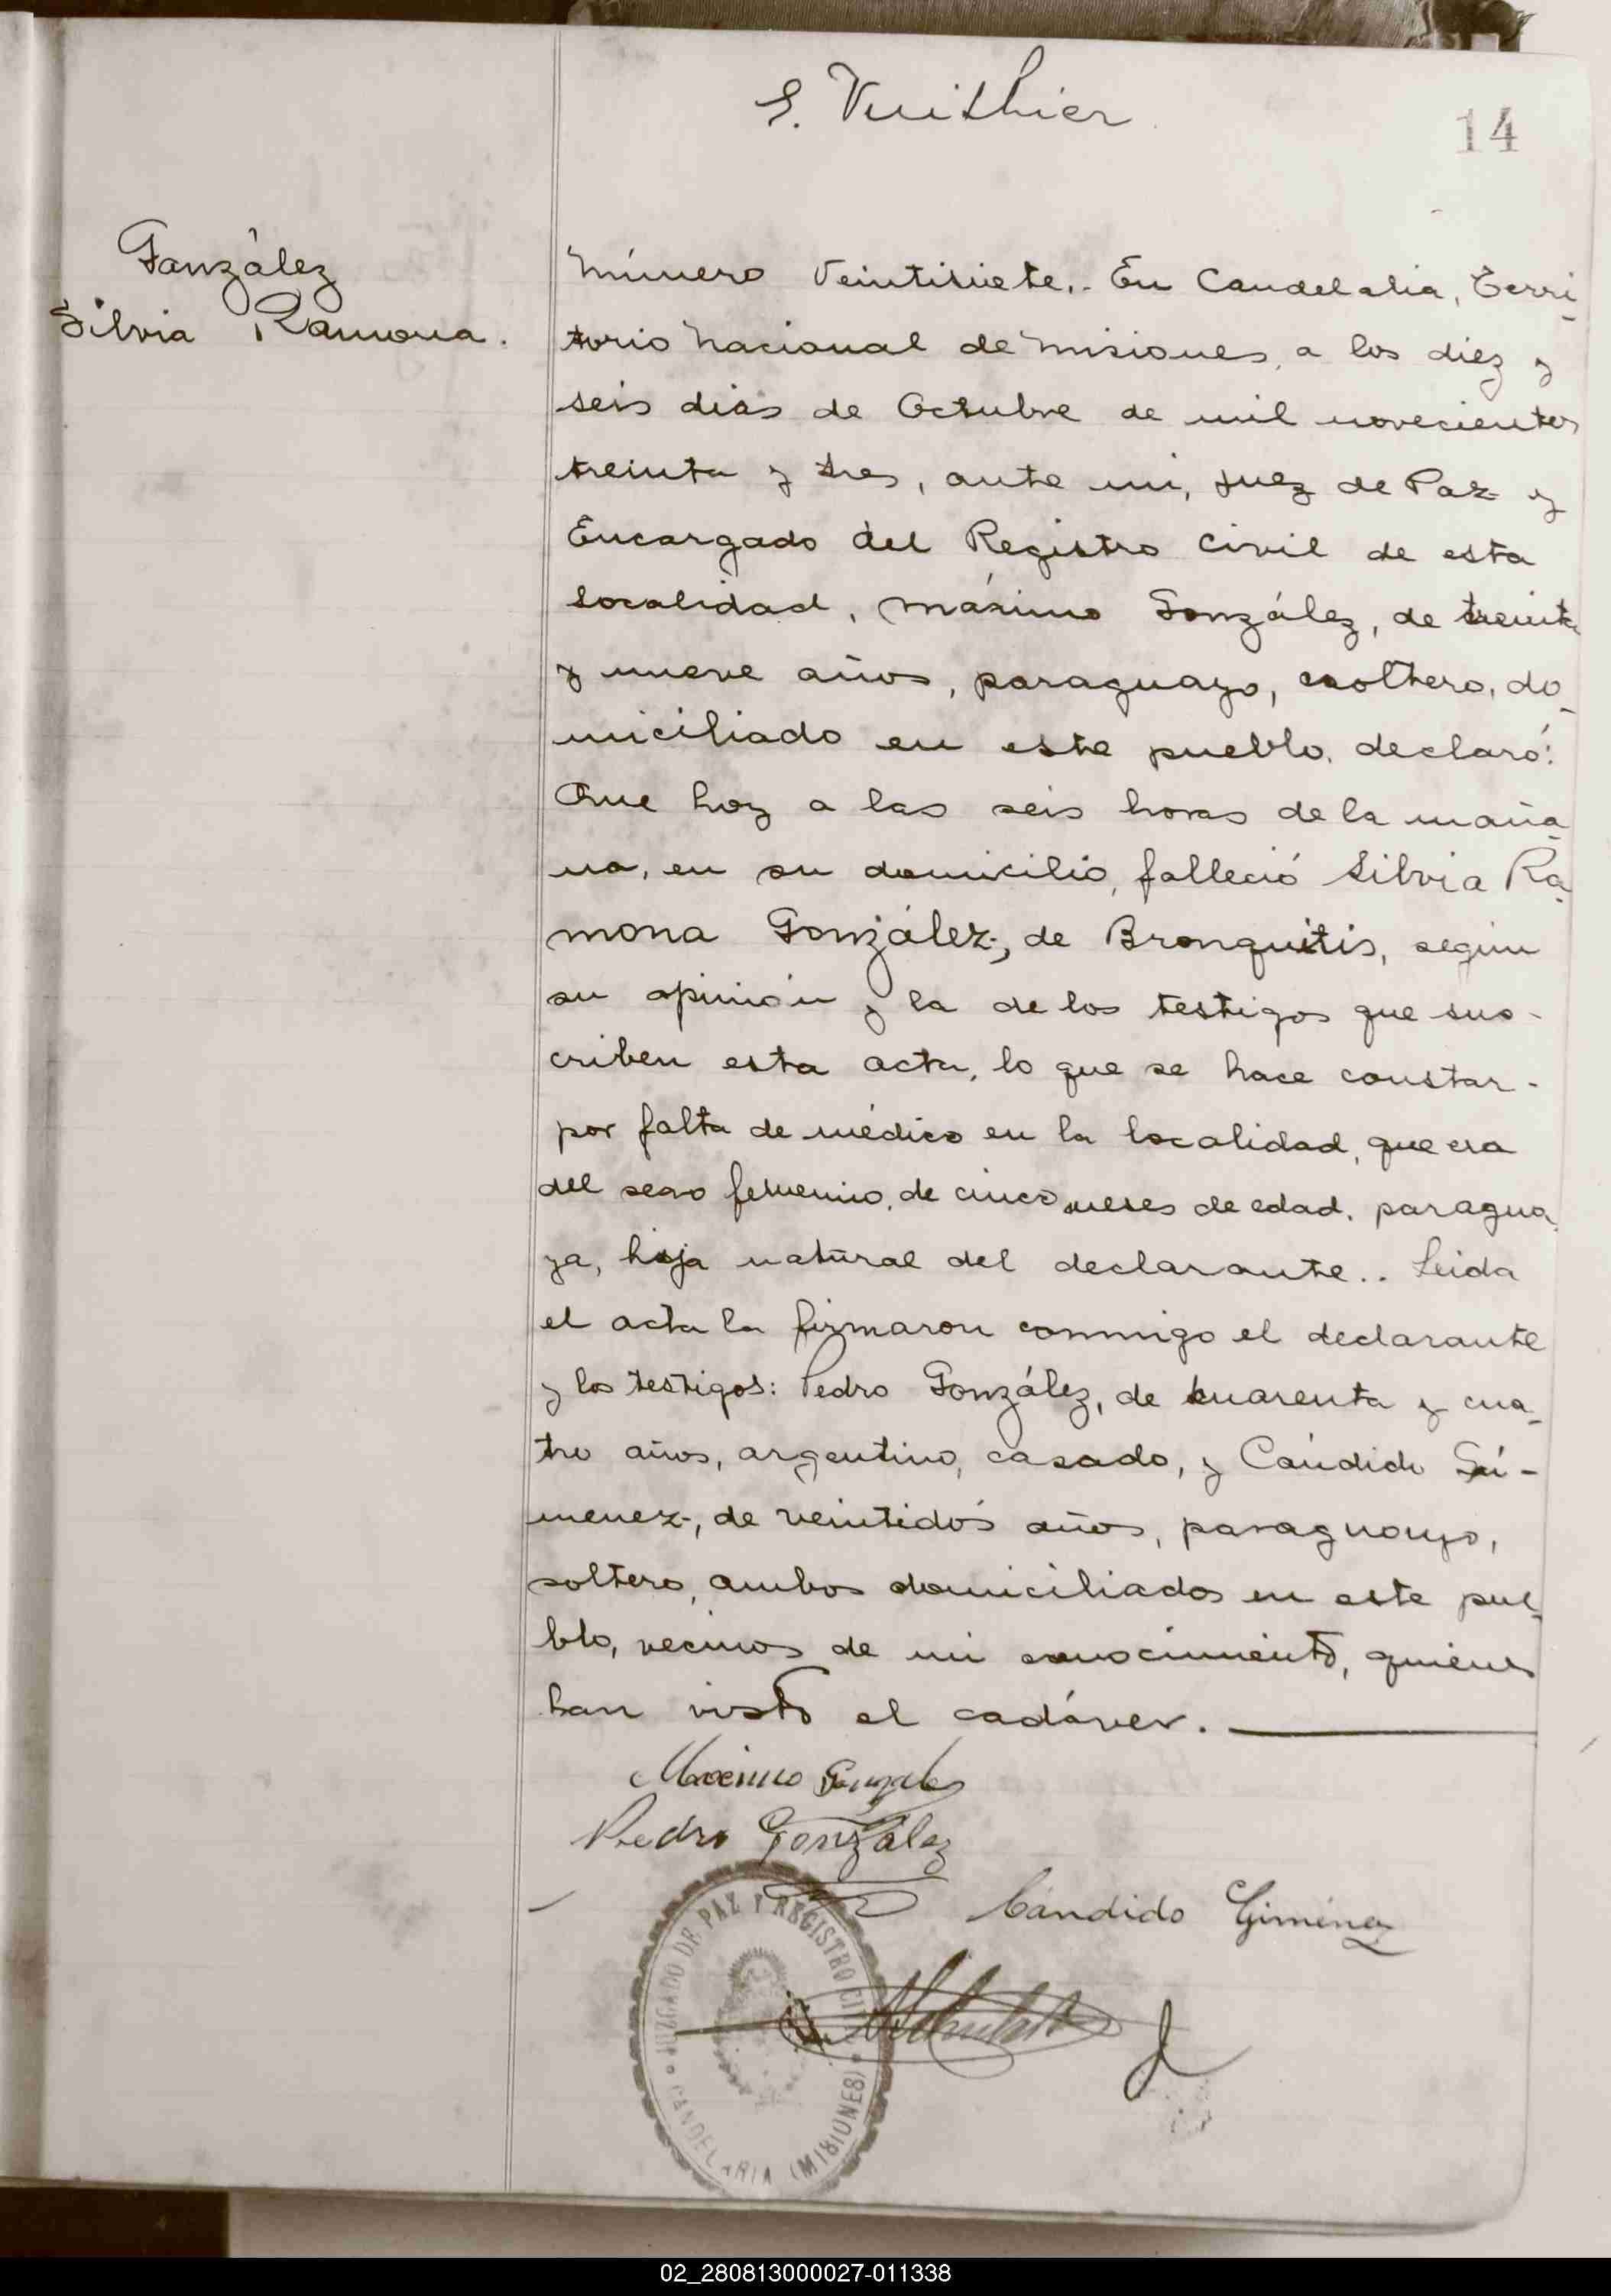 S. Vuithier
14
González
Silvia Ramona.
Número Veintisiete.- En Candelaria, Terri-
torio Nacional de Misiones, a los diez y
seis dias de Octubre de mil novecientos
treinta y tres, ante mi, Juez de Paz y
Encargado del Registro Civil de esta
localidad, Máximo González, de treinta
y nueve años, paraguayo, soltero, do-
miciliado en este pueblo, declaró:
Que hoy a las seis horas de la maña-
na, en su domicilio, falleció Silvia Ra-
mona González, de Bronquitis, según
su opinión y la de los testigos que sus-
criben esta acta, lo que se hace constar-
por falta de médico en la localidad, que era
del sexo femenino, de cinco meses de edad, paragua-
ya, hija natural del declarante.. Leida
el acta la firmaron conmigo el declarante
y los testigos: Pedro González, de cuarenta y cua-
tro años, argentino, casado, y Cándido Gi-
menez, de veintidós años, paraguayo,
soltero, ambos domiciliados en este pue-
blo, vecinos de mi conocimiento, quienes
han visto el cadáver.
Maximo Gonzales
Pedro González
Cándido Giménez
JUZGADO DE PAZ Y REGISTRO CIVIL
CANDELARIA (MISIONES)
02_280813000027-011338